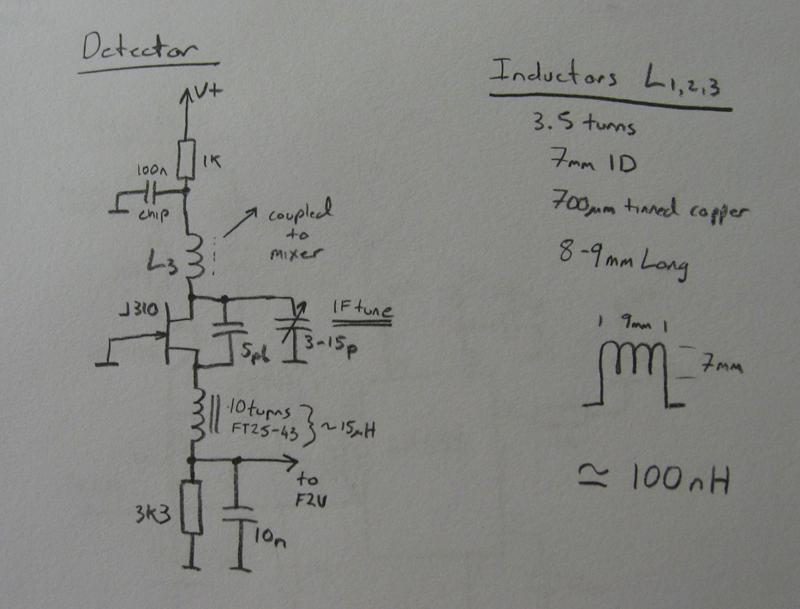 Detector
V+
1K
100n
chip
coupled
to
mixer
L3
J310
IF tune
5p6
3-15p
10 turns
FT25-43
~15μH
to
F2V
3K3
10n
Inductors L1,2,3
3.5 turns
7mm ID
700μm tinned copper
8-9mm Long
9mm
7mm
≃ 100nH